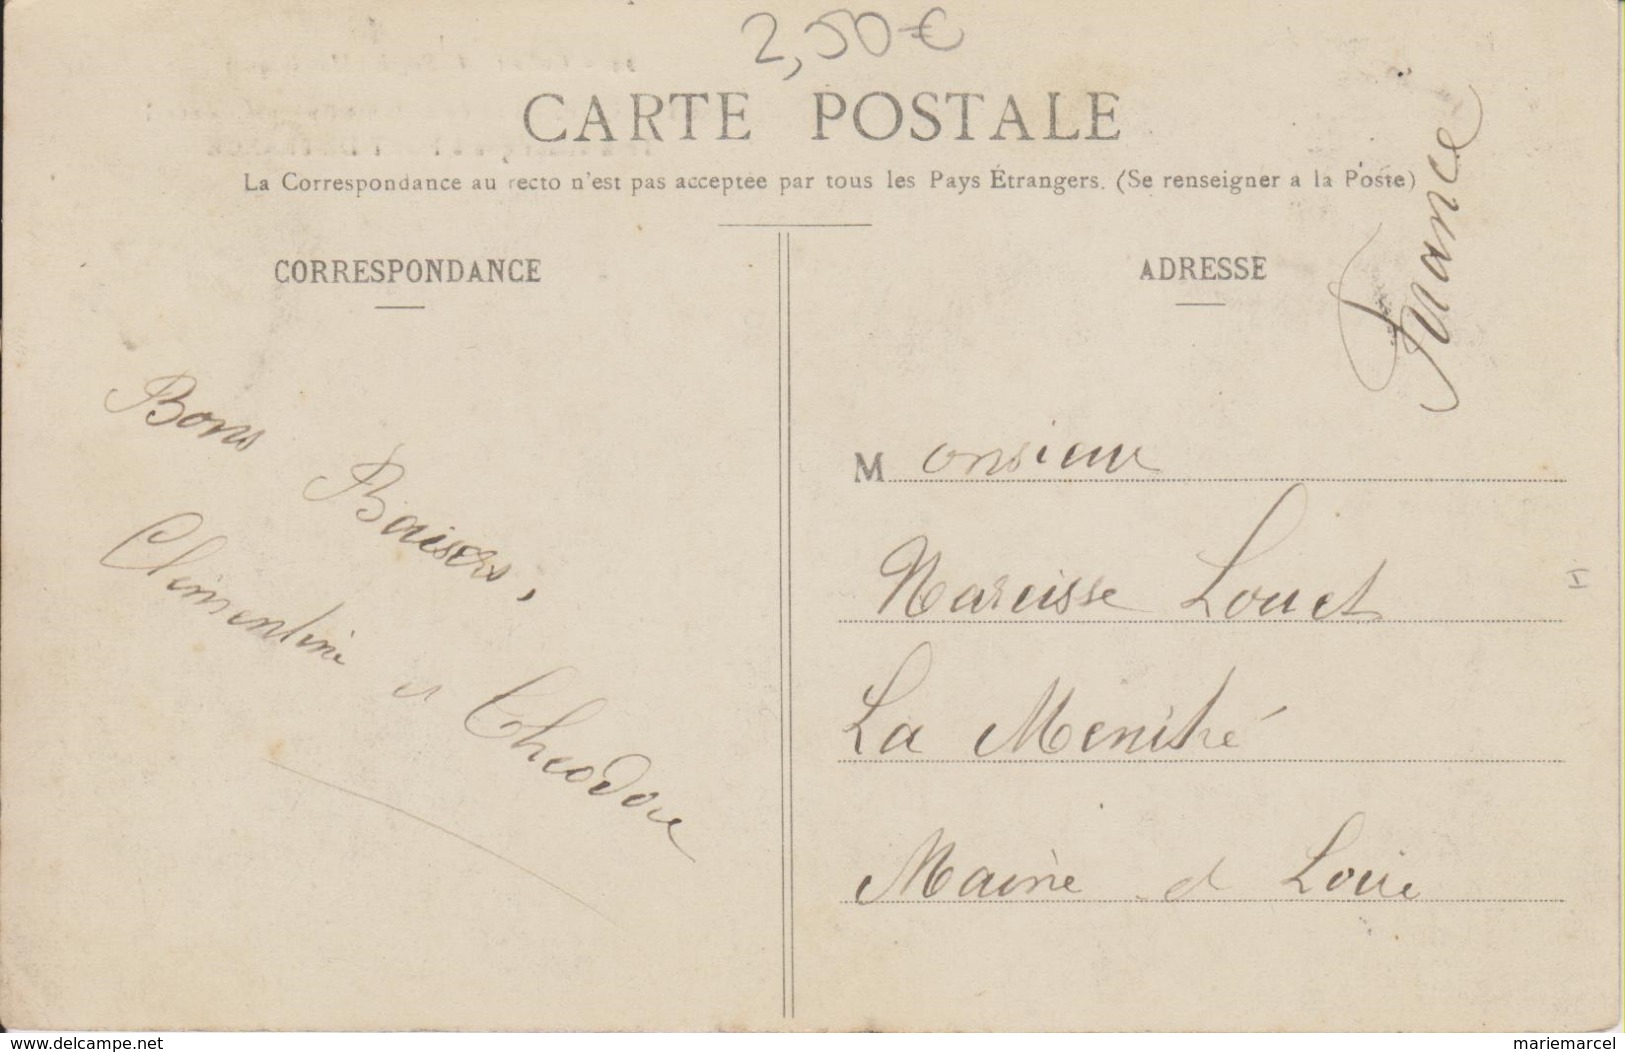 2,50 €
CARTE POSTALE
La Correspondance au recto n'est pas acceptée par tous les Pays Étrangers. (Se renseigner a la Poste)
CORRESPONDANCE
ADRESSE
France
Bons Baisers,
Clémentine et Théodore
Monsieur
Narcisse Louet
La Menitré
Maine et Loire
www.delcampe.net
mariemarcel